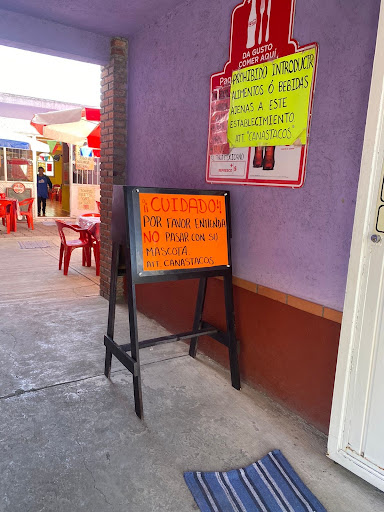 DA GUSTO
COMER AQUÍ
PROHIBIDO INTRODUCIR
ALIMENTOS Ó BEBIDAS
AJENAS A ESTE
ESTABLECIMIENTO
ATT. "CANASTACOS"
¡¡CUIDADO!!
POR FAVOR ENTIENDA
NO PASAR CON SU
MASCOTA.
ATT. CANASTACOS.